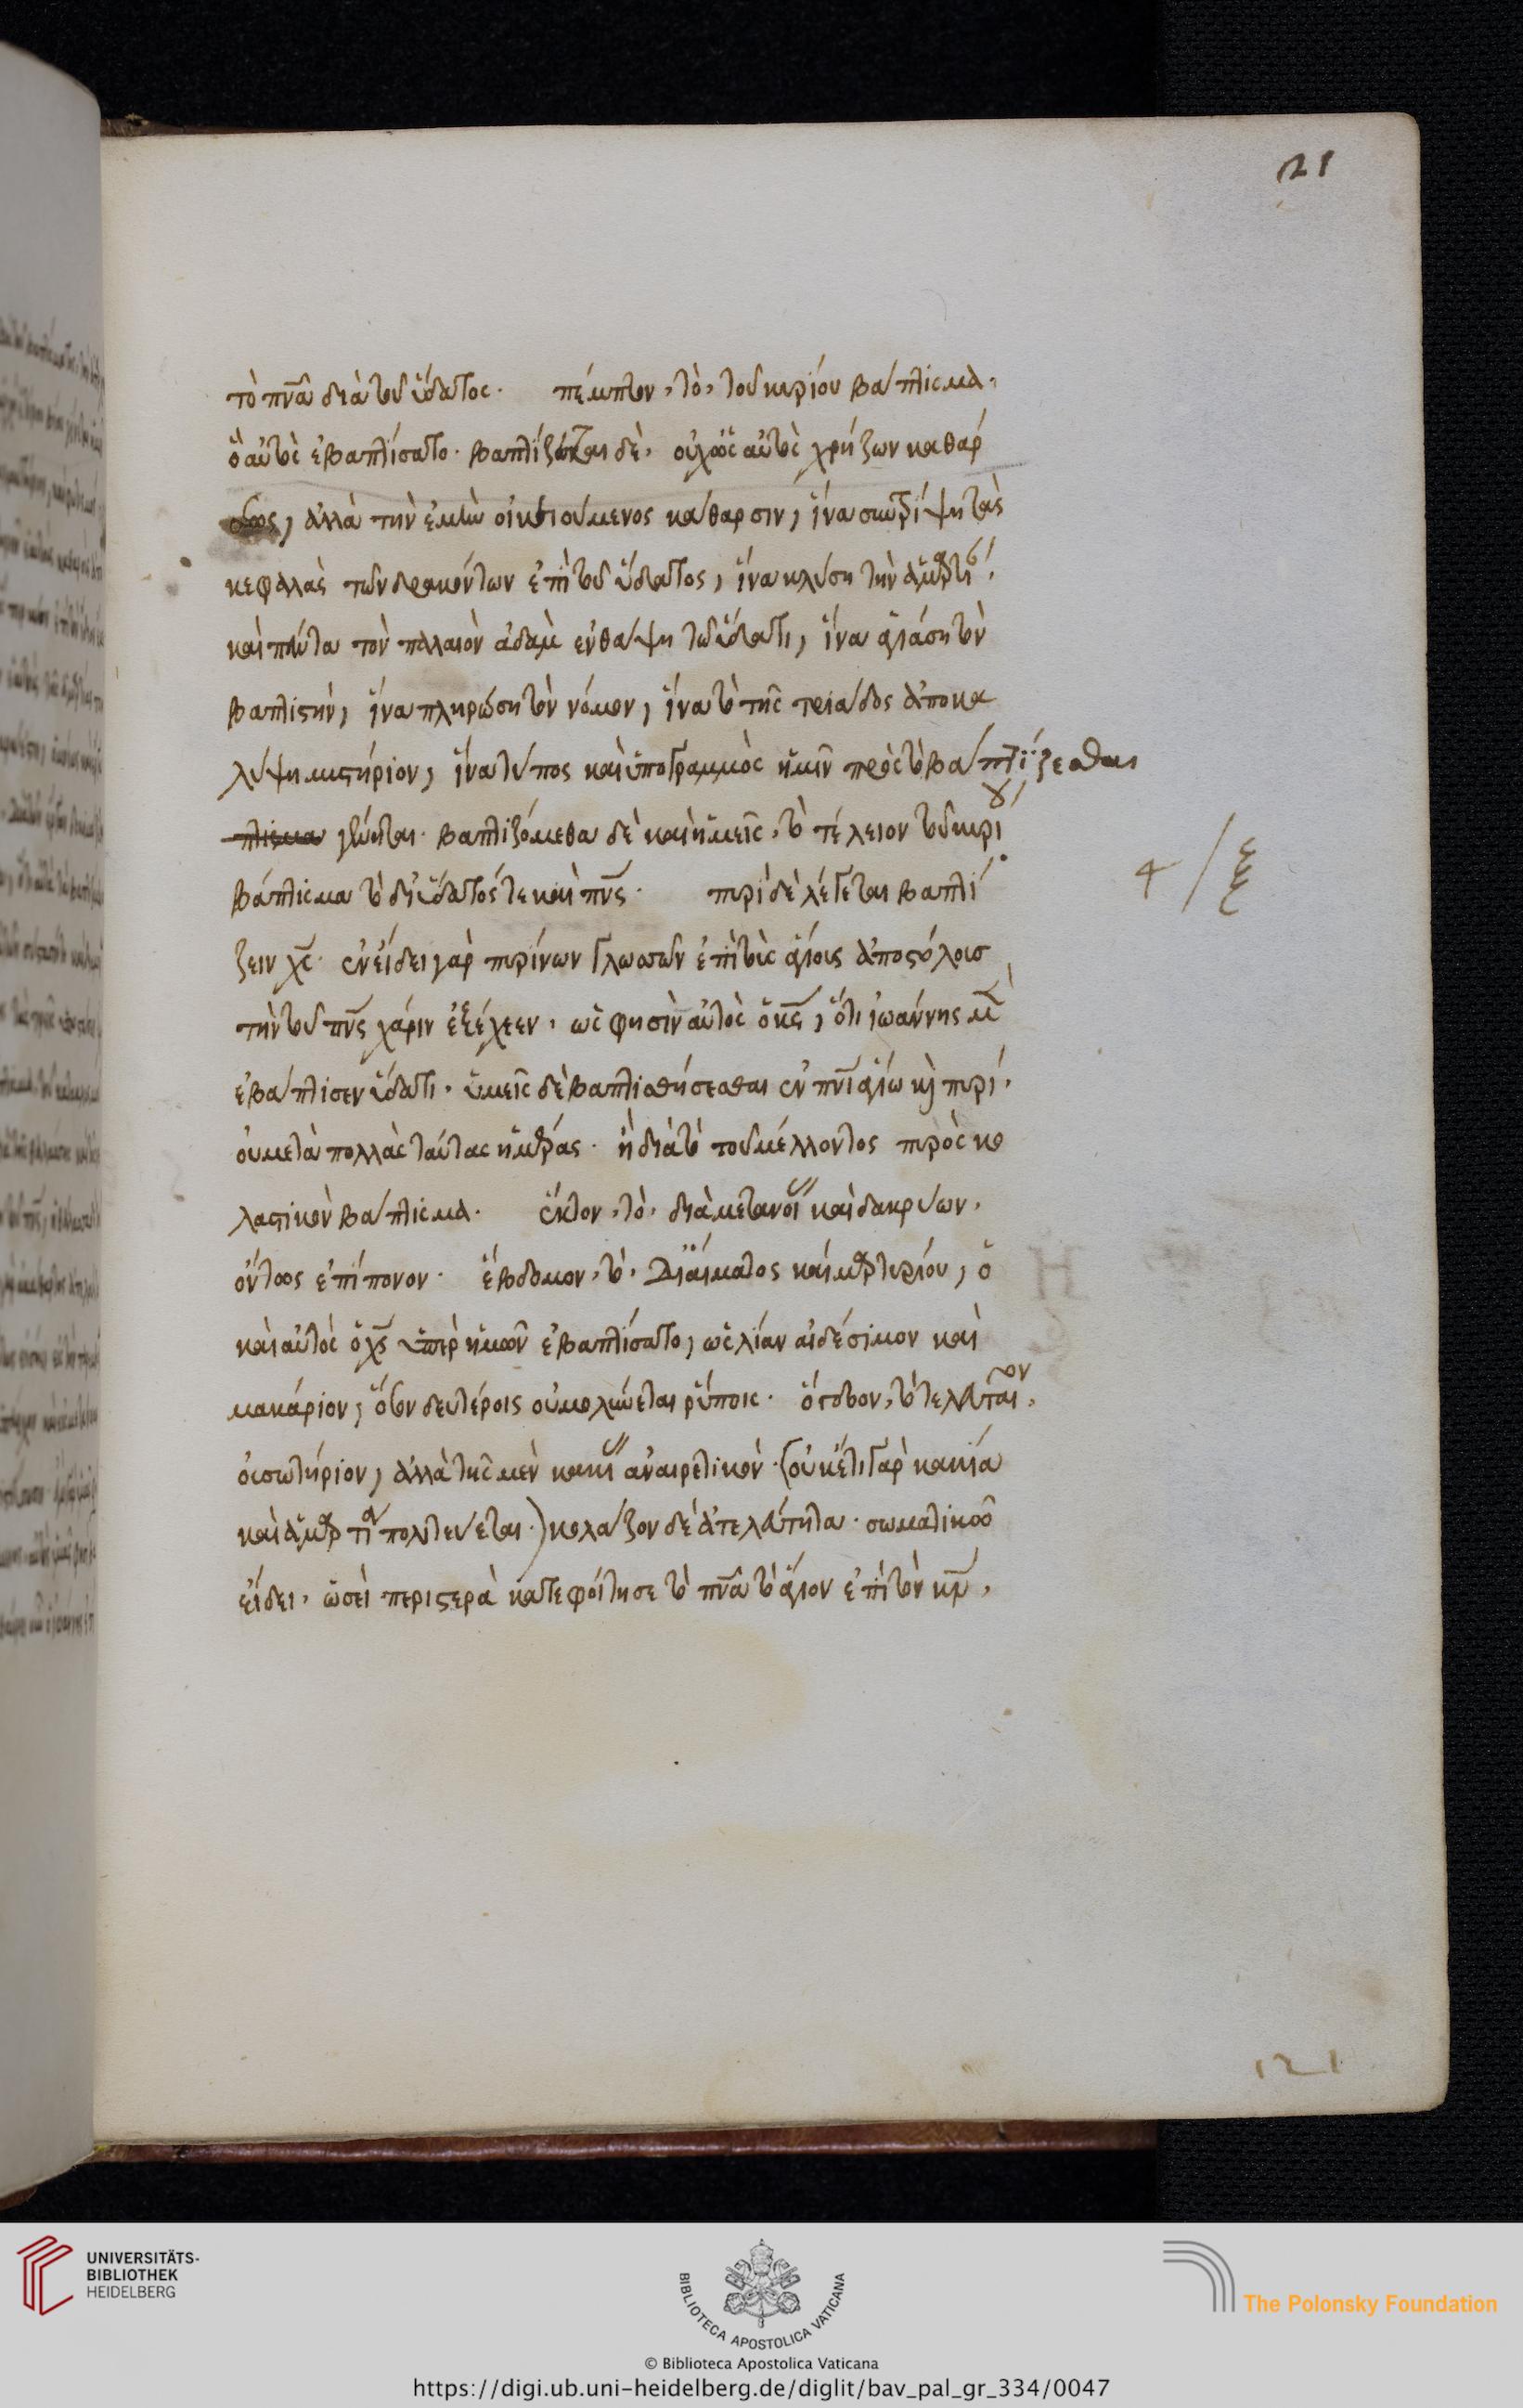 21
τὸ πνᾶ διὰ τοῦ ὕδατος· πέμπτον, τὸ, τοῦ κυρίου βάπτισμα,
ὃ αὐτὸς ἐβαπτίσατο· βαπτίζεται δὲ, οὐχ ὡς αὐτὸς χρήζων καθάρ
σεως, ἀλλὰ τὴν ἐμὴν οἰκειούμενος κάθαρσιν, ἵνα συντρίψη τὰς
κεφαλὰς τῶν δρακόντων ἐπὶ τοῦ ὕδατος, ἵνα κλύση τὴν ἁμρτί,
καὶ πάντα τὸν παλαιὸν ἀδὰμ ἐνθάψη τῶ ὕδατι, ἵνα ἁγιάση τὸν
βαπτιστὴν, ἵνα πληρώση τὸν νόμον, ἵνα τὸ τῆς τριάδος ἀποκα
λύψη μυστήριον, ἵνα τύπος καὶ ὑπογραμμὸς ἡμῖν πρὸς τὸ βαπτίζεσθαι
γένηται· βαπτιζόμεθα δὲ καὶ ἡμεῖς, τὸ τέλειον τοῦ κυρίου
βάπτισμα τὸ δι' ὕδατός τε καὶ πνς· πυρὶ δὲ λέγεται βαπτί
ζειν χς· ἐν εἴδει γὰρ πυρίνων γλωσσῶν ἐπὶ τοὺς ἁγίους ἀποστόλους
τὴν τοῦ πνς χάριν ἐξέχεεν, ὥς φησὶν αὐτὸς ὁ κς, ὅτι ἰωάννης μὲν
ἐβάπτισεν ὕδατι, ὑμεῖς δὲ βαπτισθήσεσθαι ἐν πνι ἁγίω κὶ πυρί,
οὐ μετὰ πολλὰς ταύτας ἡμέρας· ἢ διὰ τὸ τοῦ μέλλοντος πυρὸς κο
λαστικὸν βάπτισμα· ἕκτον, τὸ, διὰ μετανοίας καὶ δακρύων,
ὄντως ἐπίπονον· ἕβδομον, τὸ, δι' αἵματος καὶ μαρτυρίου, ὃ
καὶ αὐτὸς ὁ χς ὑπὲρ ἡμῶν ἐβαπτίσατο, ὡς λίαν αἰδέσιμον καὶ
μακάριον, ὅσον δευτέροις οὐ μολύνεται ῥύποις· ὄγδοον, τὸ τελευταῖον,
οὐ σωτήριον, ἀλλὰ τῆς μὲν κακίας ἀναιρετικὸν· (οὐκέτι γὰρ κακία
καὶ ἁμαρτία πολιτεύεται·) κολάζον δὲ ἀτελεύτητα· σωματικῶ
εἴδει, ὡσεὶ περιστερὰ κατεφοίτησε τὸ πνᾶ τὸ ἅγιον ἐπὶ τὸν κν,
121
UNIVERSITÄTS-
BIBLIOTHEK
HEIDELBERG
BIBLIOTECA APOSTOLICA VATICANA
The Polonsky Foundation
© Biblioteca Apostolica Vaticana
https://digi.ub.uni-heidelberg.de/diglit/bav_pal_gr_334/0047